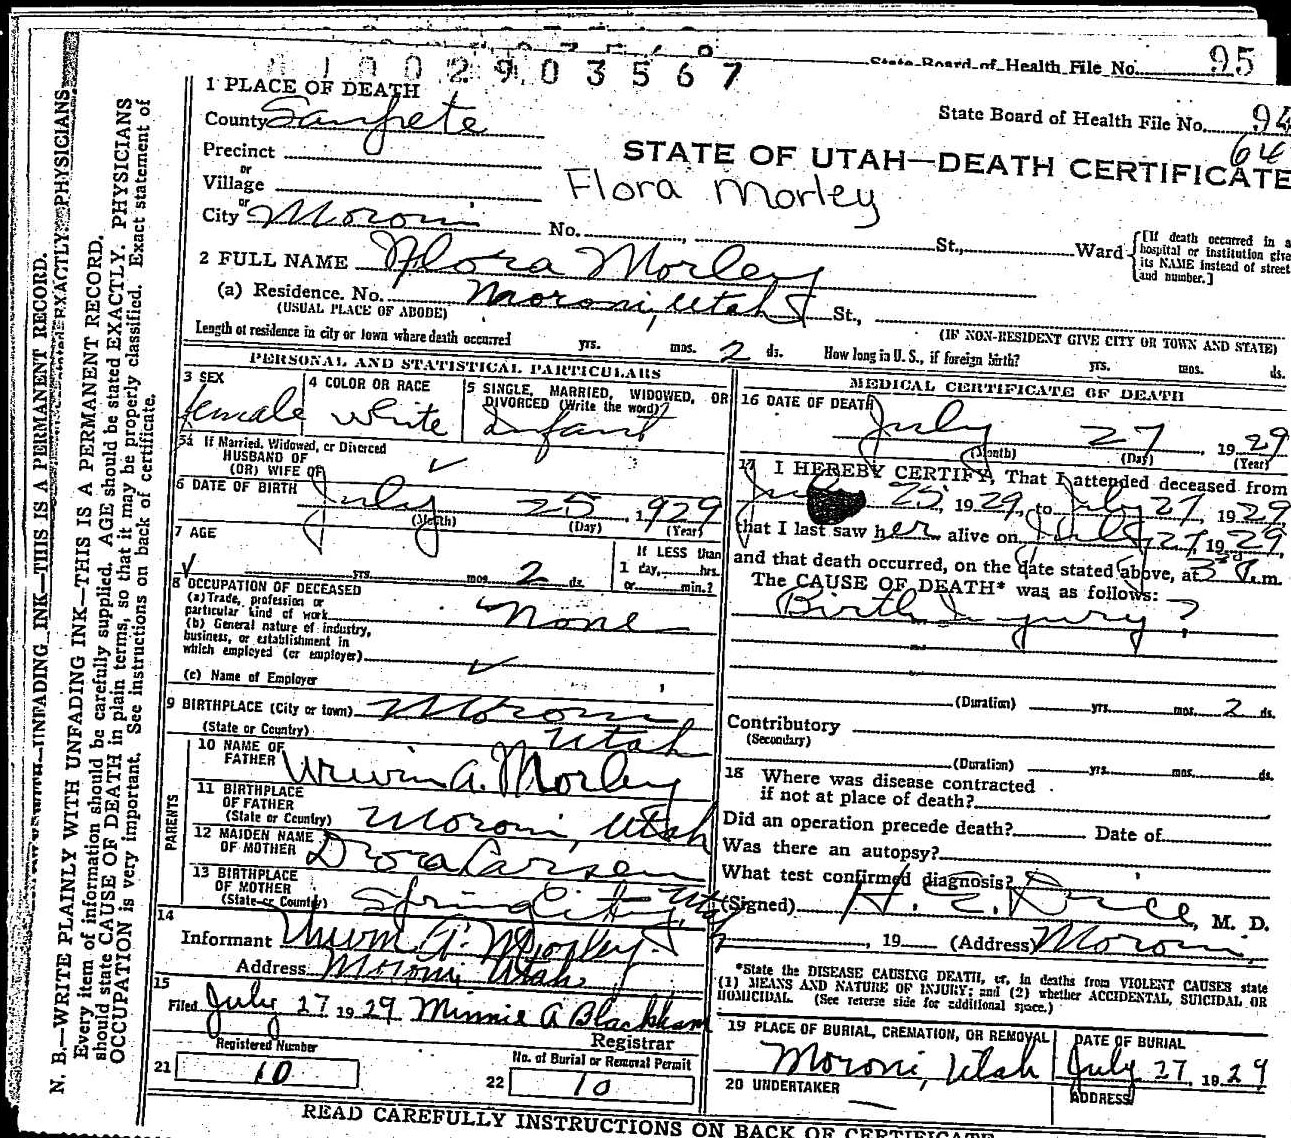 State Board of Health File No. 95
1002903567
State Board of Health File No. 94
64
1 PLACE OF DEATH
County Sanpete
STATE OF UTAH—DEATH CERTIFICATE
Precinct
or
Village
Flora Morley
or
City Moroni No. St., Ward
[If death occurred in a
hospital or institution give
its NAME instead of street
and number.]
2 FULL NAME Flora Morley
(a) Residence. No. Moroni, Utah St.,
(USUAL PLACE OF ABODE)
(IF NON-RESIDENT GIVE CITY OR TOWN AND STATE)
Length of residence in city or town where death occurred yrs. mos. 2 ds. How long in U. S., if foreign birth? yrs. mos. ds.
PERSONAL AND STATISTICAL PARTICULARS
3 SEX
female
4 COLOR OR RACE
white
5 SINGLE, MARRIED, WIDOWED, OR
DIVORCED (Write the word)
Infant
5a If Married, Widowed, or Divorced
HUSBAND OF
(OR) WIFE OF ✓
6 DATE OF BIRTH July 25, 1929
(Month) (Day) (Year)
7 AGE
✓ yrs. mos. 2 ds.
If LESS than
1 day, hrs.
or min.?
8 OCCUPATION OF DECEASED
(a) Trade, profession or
particular kind of work None
(b) General nature of industry,
business, or establishment in
which employed (or employer)
✓
(c) Name of Employer
9 BIRTHPLACE (City or town) Moroni
(State or Country) Utah
PARENTS
10 NAME OF
FATHER A. Morley
11 BIRTHPLACE
OF FATHER
(State or Country) Moroni, Utah
12 MAIDEN NAME
OF MOTHER
13 BIRTHPLACE
OF MOTHER
(State or Country) Spring City,
14
Informant A. Morley
Address Moroni Utah
15
Filed July 27 1929 Minnie A Blackham
Registrar
Registered Number
21 10
No. of Burial or Removal Permit
22 10
MEDICAL CERTIFICATE OF DEATH
16 DATE OF DEATH
July 27, 1929
(Month) (Day) (Year)
17 I HEREBY CERTIFY, That I attended deceased from
25, 1929, to July 27, 1929
that I last saw her alive on July 27, 1929,
and that death occurred, on the date stated above, at m.
The CAUSE OF DEATH* was as follows:
Birth Injury?
(Duration) yrs. mos. 2 ds.
Contributory
(Secondary)
(Duration) yrs. mos. ds.
18 Where was disease contracted
if not at place of death?
Did an operation precede death? Date of
Was there an autopsy?
What test confirmed diagnosis?
(Signed) H. E. M. D.
, 19 (Address) Moroni
*State the DISEASE CAUSING DEATH, or, in deaths from VIOLENT CAUSES state
(1) MEANS AND NATURE OF INJURY; and (2) whether ACCIDENTAL, SUICIDAL OR
HOMICIDAL. (See reverse side for additional space.)
19 PLACE OF BURIAL, CREMATION, OR REMOVAL
Moroni, Utah
DATE OF BURIAL
July 27, 1929
20 UNDERTAKER —
ADDRESS
READ CAREFULLY INSTRUCTIONS ON BACK OF CERTIFICATE
UNFADING INK—THIS IS A PERMANENT RECORD.
EXACTLY. PHYSICIANS
N. B.—WRITE PLAINLY WITH UNFADING INK—THIS IS A PERMANENT RECORD.
Every item of information should be carefully supplied. AGE should be stated EXACTLY. PHYSICIANS
should state CAUSE OF DEATH in plain terms, so that it may be properly classified. Exact statement of
OCCUPATION is very important. See instructions on back of certificate.